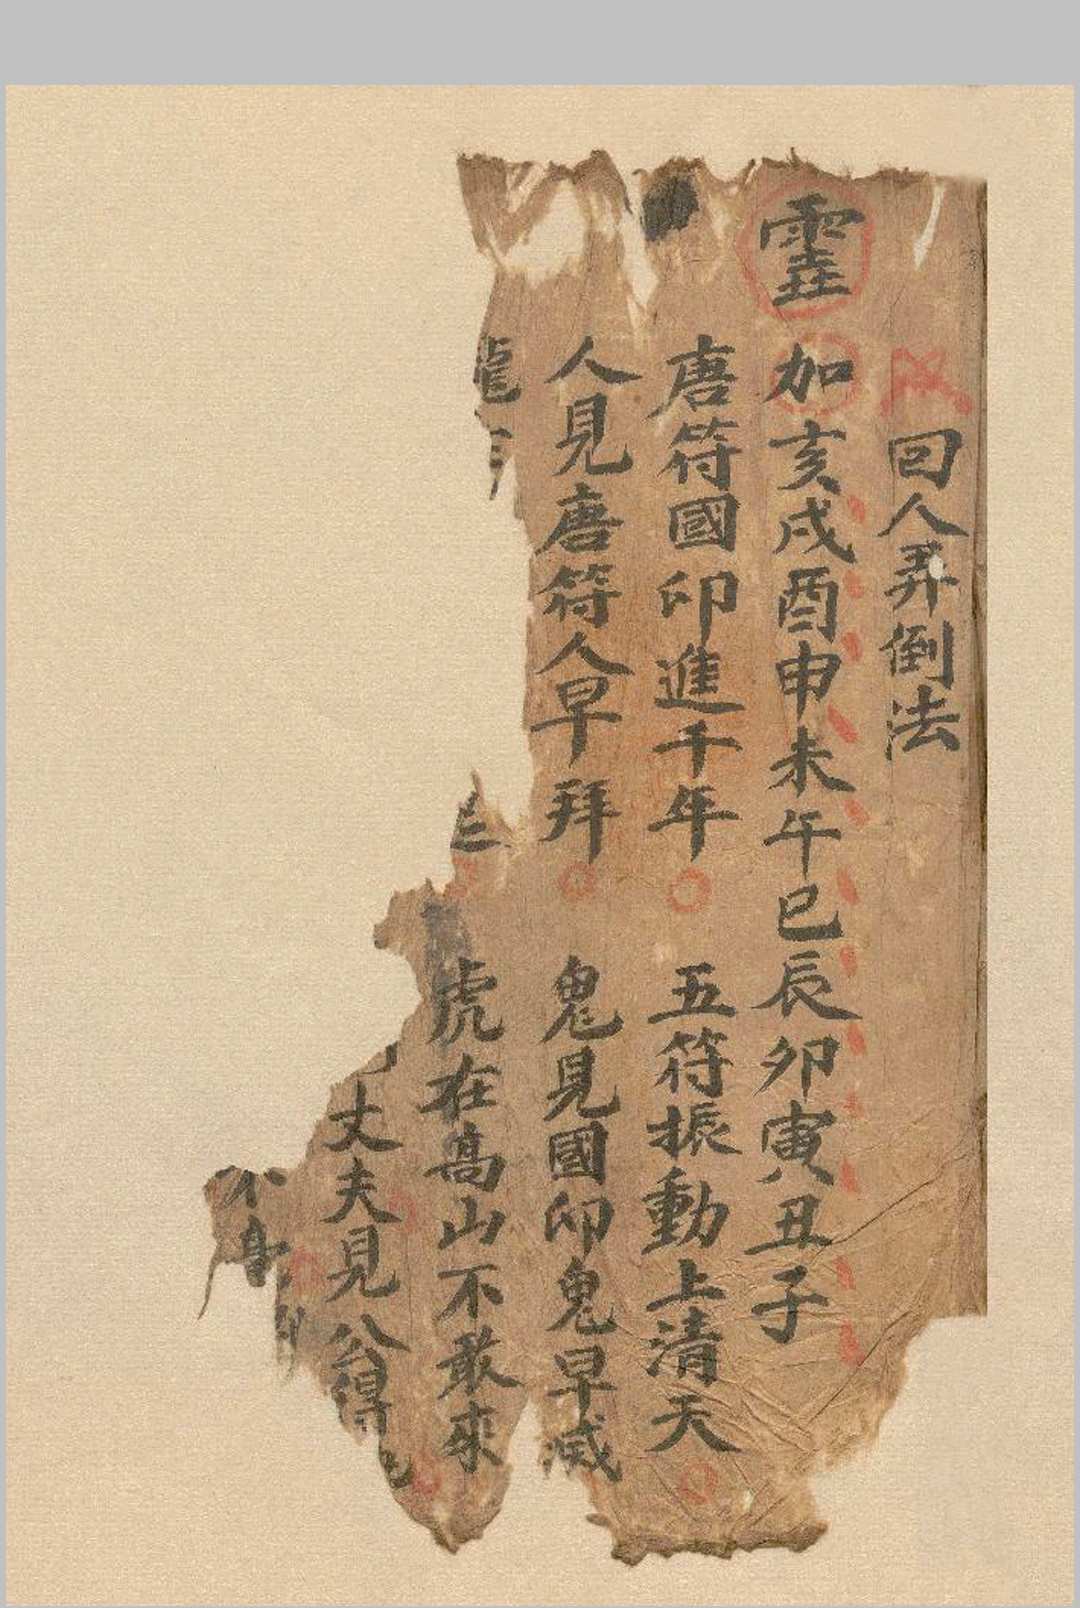 回人弄倒法
靈 加亥戌酉申未午巳辰卯寅丑子
唐符國印進千年 五符振動上清天
人見唐符人早拜 鬼見國印鬼早滅
龍 虎在高山不敢來
丈夫見公得
不